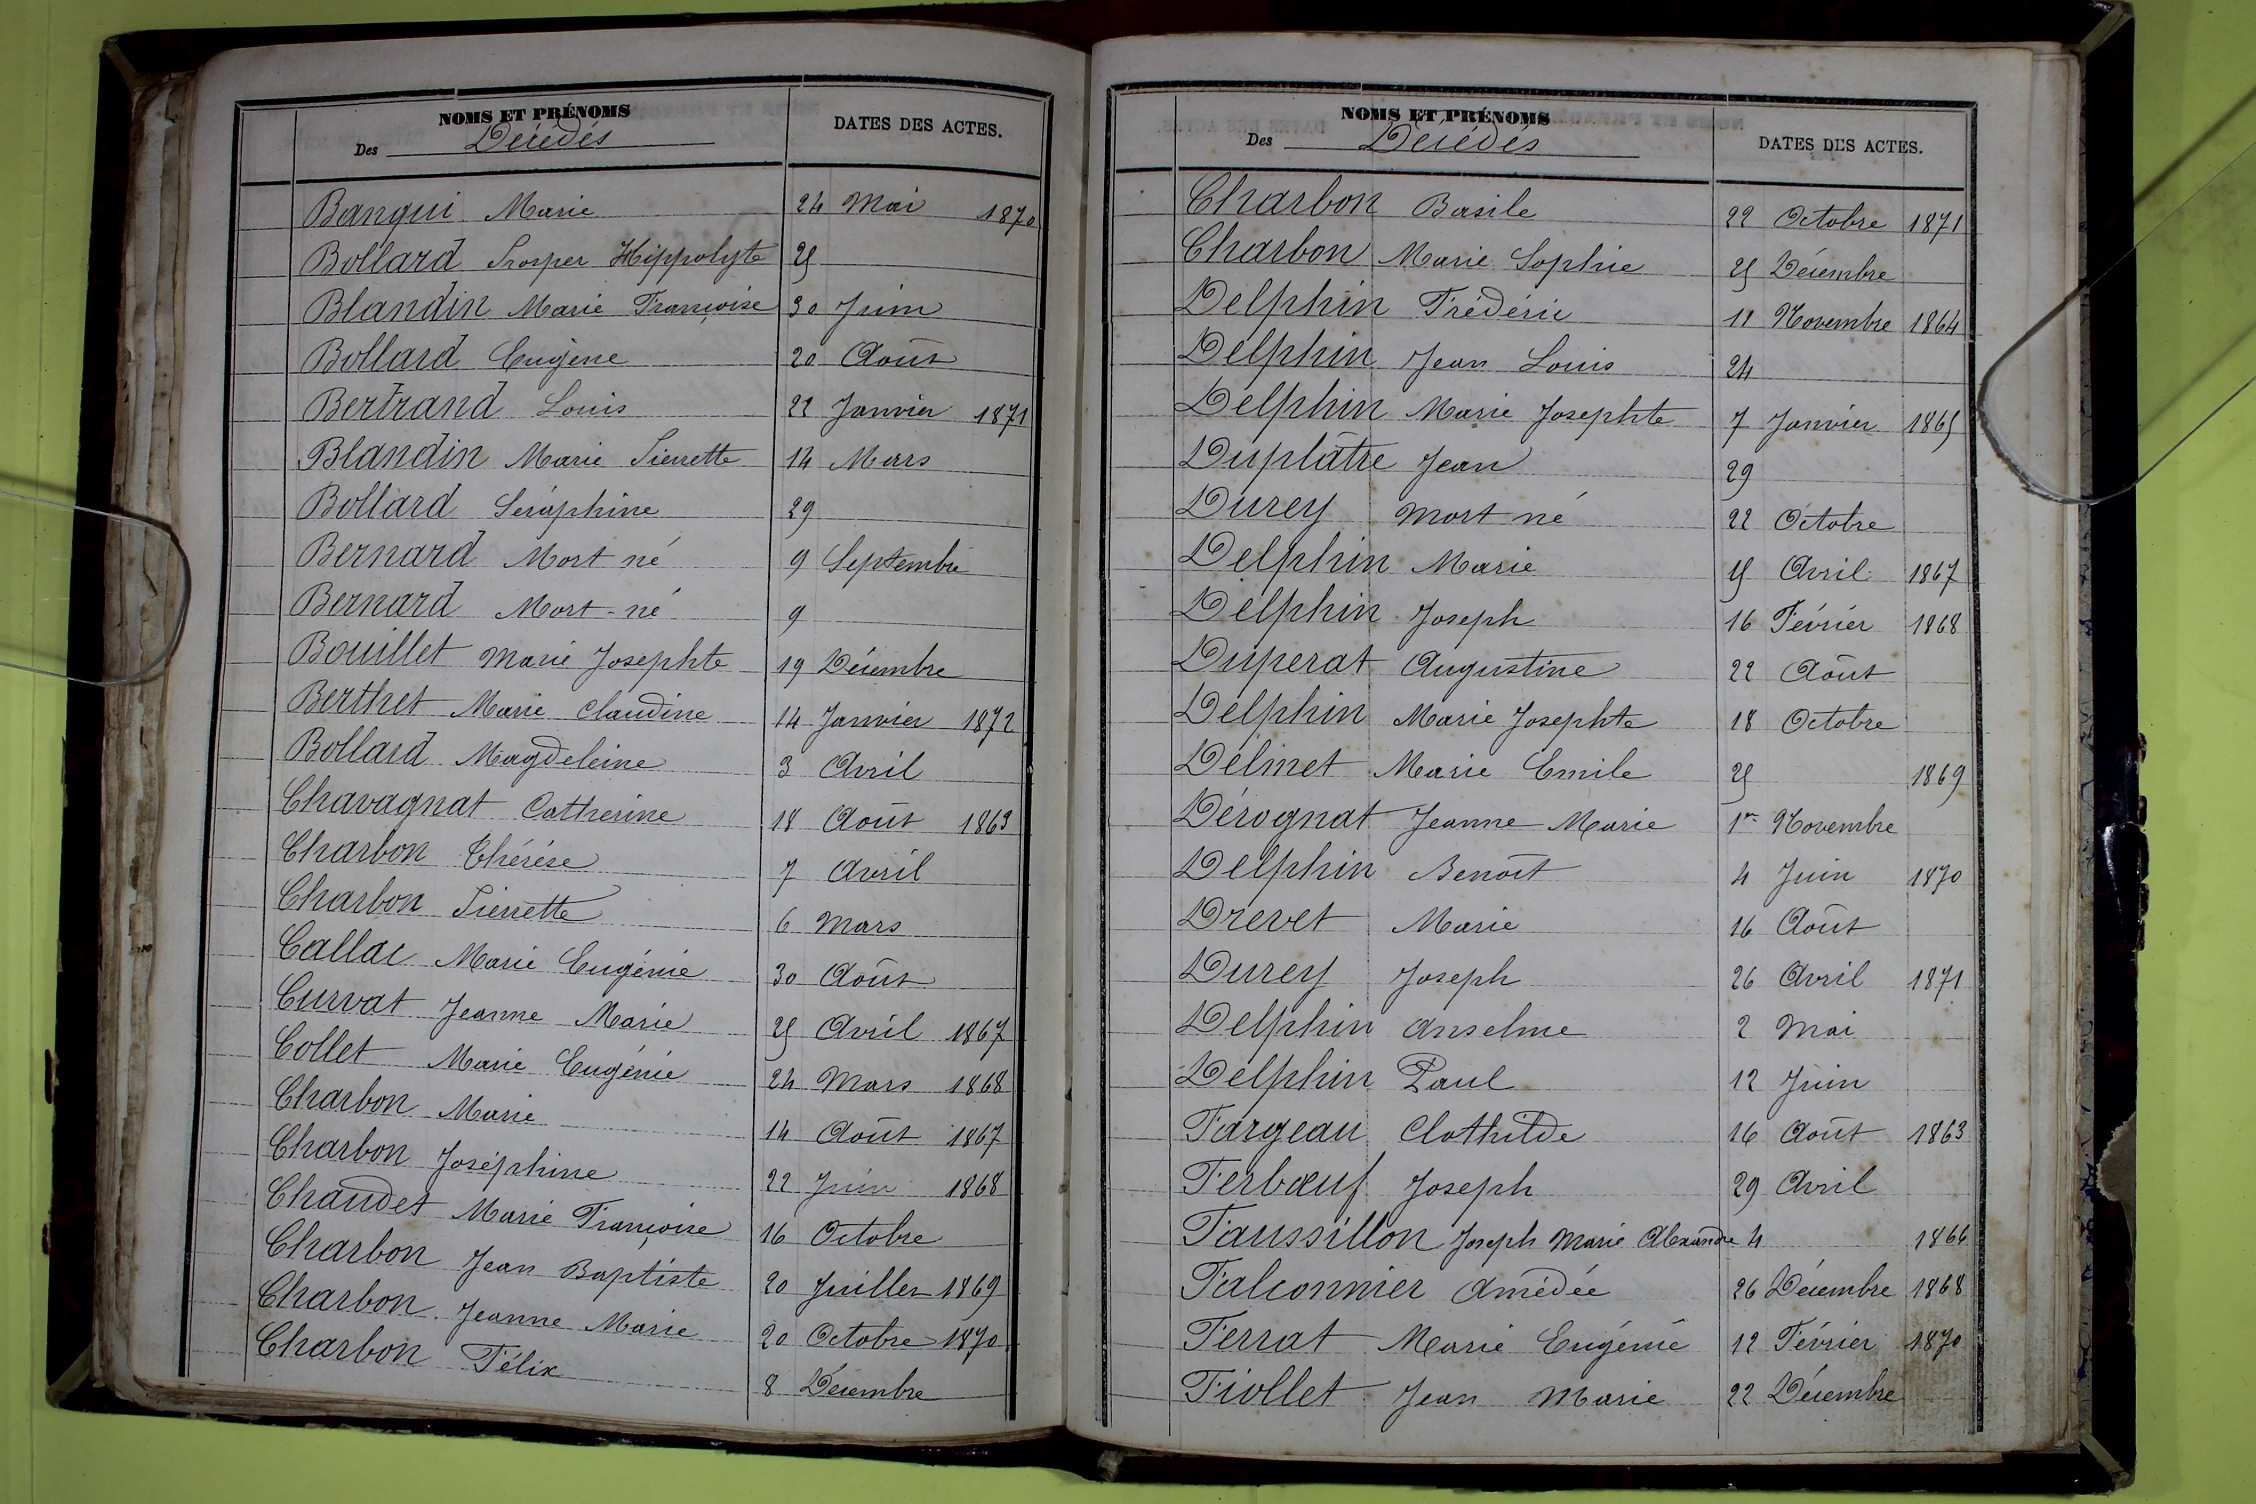 NOMS ET PRÉNOMS
Des Décédés
DATES DES ACTES.
Banqui Marie 24 Mai 1870
Bollard Prosper Hippolyte 25
Blandin Marie Françoise 30 Juin
Bollard Eugène 20 Août
Bertrand Louis 22 Janvier 1871
Blandin Marie Pierrette 14 Mars
Bollard Séraphine 29
Bernard Mort né 9 Septembre
Bernard Mort-né 9
Bouillet Marie Josephte 19 Décembre
Berthet Marie Claudine 14 Janvier 1872
Bollard Magdeleine 3 Avril
Chavagnat Catherine 18 Août 1863
Charbon Thérèse 7 Avril
Charbon Pierrette 6 Mars
Callac Marie Eugénie 30 Août
Curvat Jeanne Marie 25 Avril 1867
Collet Marie Eugénie 24 Mars 1868
Charbon Marie 14 Août 1867
Charbon Joséphine 22 Juin 1868
Chaudet Marie Françoise 16 Octobre
Charbon Jean Baptiste 20 Juillet 1869
Charbon Jeanne Marie 20 Octobre 1870
Charbon Félix 8 Décembre
NOMS ET PRÉNOMS
Des Décédés
DATES DES ACTES.
Charbon Basile 22 Octobre 1871
Charbon Marie Sophie 25 Décembre
Delphin Frédéric 11 Novembre 1864
Delphin Jean Louis 24
Delphin Marie Josephte 7 Janvier 1865
Duplâtre Jean 29
Durey Mort né 22 Octobre
Delphin Marie 15 Avril 1867
Delphin Joseph 16 Février 1868
Duperat Augustine 22 Août
Delphin Marie Josephte 18 Octobre
Délinet Marie Emile 25 1869
Dérognat Jeanne Marie 1er Novembre
Delphin Benoît 4 Juin 1870
Drevet Marie 16 Août
Durey Joseph 26 Avril 1871
Delphin Anselme 2 Mai
Delphin Paul 12 Juin
Fargeau Clothilde 16 Août 1863
Ferbœuf Joseph 29 Avril
Faussillon Joseph Marie Alexandre 4 1866
Falconnier Amédée 26 Décembre 1868
Ferrat Marie Eugénie 12 Février 1870
Fiollet Jean Marie 22 Décembre